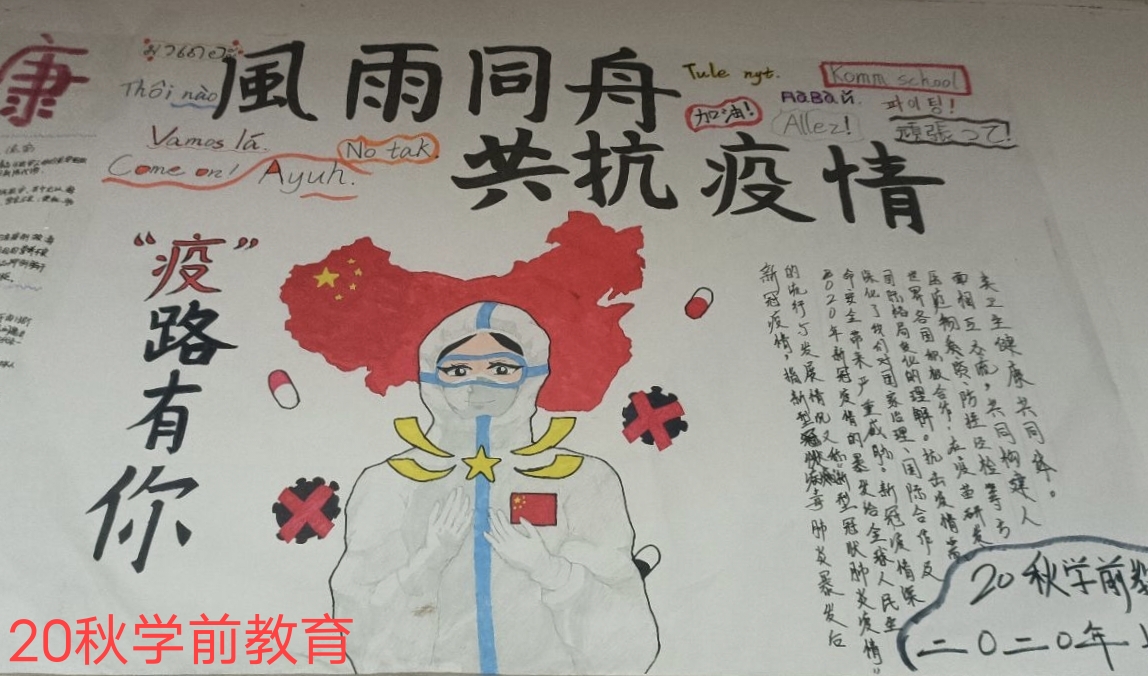 康
風雨同舟
共抗疫情
Thôi nào
Vamos lá.
No tak.
Come on!
Ayuh.
Tule nyt.
Komm school
加油!
Давай.
파이팅!
Allez!
頑張って!
“疫”
路
有
你
新冠疫情，指新型冠状病毒肺炎暴发后
的流行与发展情况又称新型冠状肺炎疫情”
2020年新冠疫情的暴发给全球人民生
命安全带来严重威胁。新冠疫情深
化了我们对国家治理、国际合作及
国际格局变化的理解。抗击疫情需
世界各国积极合作，在疫苗研发
医疗物资类、防控及检等方
面相互交流，共同构建人
类卫生健康共同体。
20秋学前教
二〇二〇年
20秋学前教育